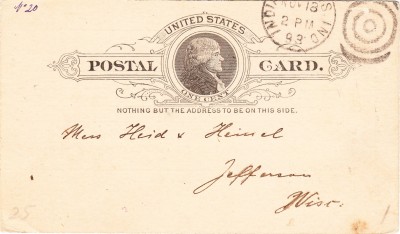 No 20
INDIA S. IND.
NOV 18
2 PM
93
UNITED STATES
POSTAL CARD.
ONE CENT
NOTHING BUT THE ADDRESS TO BE ON THIS SIDE.
Mess Heid & Heimel
Jefferson
Wisc.
25
1